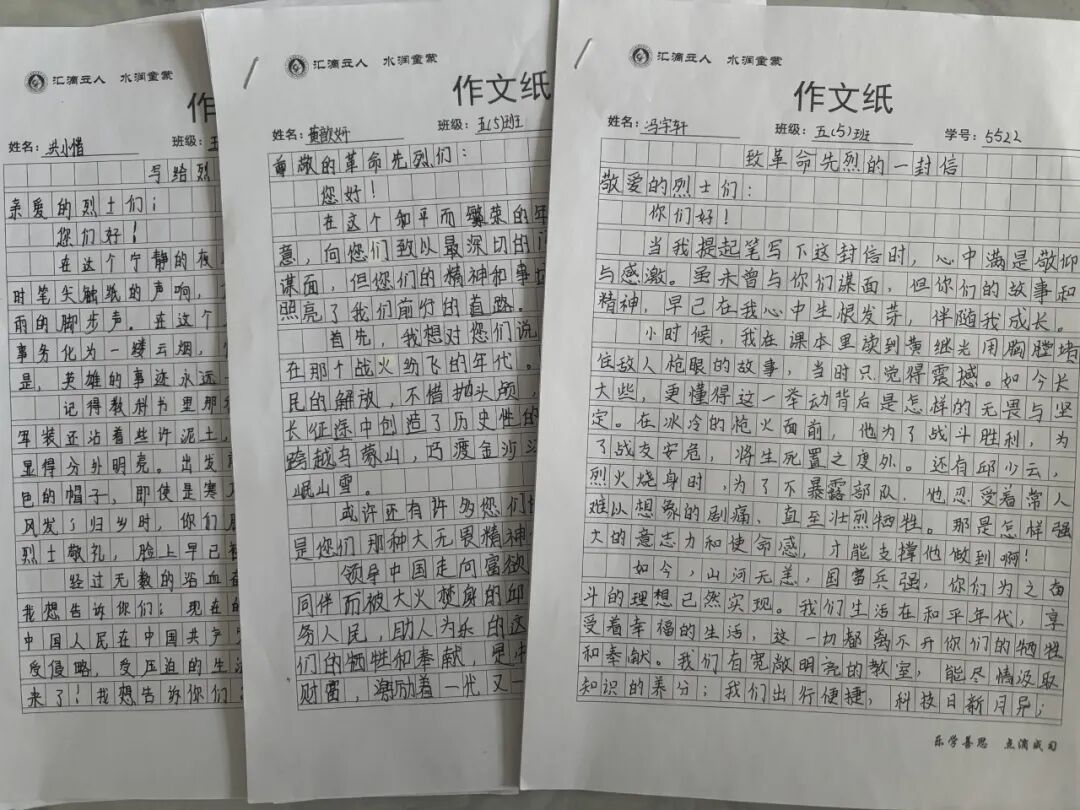 汇滴立人 水润童蒙
作
姓名：
班级：五
写给烈
亲爱的烈士们；
您们好！
在这个宁静的夜
时笔尖触纸的声响，
雨的脚步声。在这个
事务化为一缕云烟，
是，英雄的事迹永远
记得教科书里那
军装还沾着些许泥土，
显得分外明亮。出发
色的帽子，即使是寒
风发；归乡时，你们
烈士敬礼，脸上早已
经过无数的浴血奋
我想告诉你们：现在的
中国人民在中国共产党
受侵略，受压迫的生活
来了！我想告诉你们：
汇滴立人 水润童蒙
作文纸
姓名：黄歆妍 班级：五(5)班
尊敬的革命先烈们：
您好！
在这个和平而繁荣的年
意，向您们致以最深切的
谋面，但您们的精神和事迹
照亮了我们前行的道路。
首先，我想对您们说
在那个战火纷飞的年代。
民的解放，不惜抛头颅，
长征途中创造了历史性的
跨越乌蒙山，巧渡金沙江
岷山雪。
或许还有许多您们
是您们那种大无畏精神
领导中国走向富欲
同伴而被大火焚身的邱
务人民，助人为乐的这
们的牺牲和奉献，是中
财富，激励着一代又一
汇滴立人 水润童蒙
作文纸
姓名：冯宇轩 班级：五(5)班 学号：5522
致革命先烈的一封信
敬爱的烈士们：
你们好！
当我提起笔写下这封信时，心中满是敬仰
与感激。虽未曾与你们谋面，但你们的故事和
精神，早已在我心中生根发芽，伴随我成长。
小时候，我在课本里读到黄继光用胸膛堵
住敌人枪眼的故事，当时只觉得震撼。如今长
大些，更懂得这一举动背后是怎样的无畏与坚
定。在冰冷的枪火面前，他为了战斗胜利，为
了战友安危，将生死置之度外。还有邱少云，
烈火烧身时，为了不暴露部队，他忍受着常人
难以想象的剧痛，直至壮烈牺牲。那是怎样强
大的意志力和使命感，才能支撑他做到啊！
如今，山河无恙，国富兵强，你们为之奋
斗的理想已然实现。我们生活在和平年代，享
受着幸福的生活，这一切都离不开你们的牺牲
和奉献。我们有宽敞明亮的教室，能尽情汲取
知识的养分；我们出行便捷，科技日新月异；
乐学善思 点滴成司